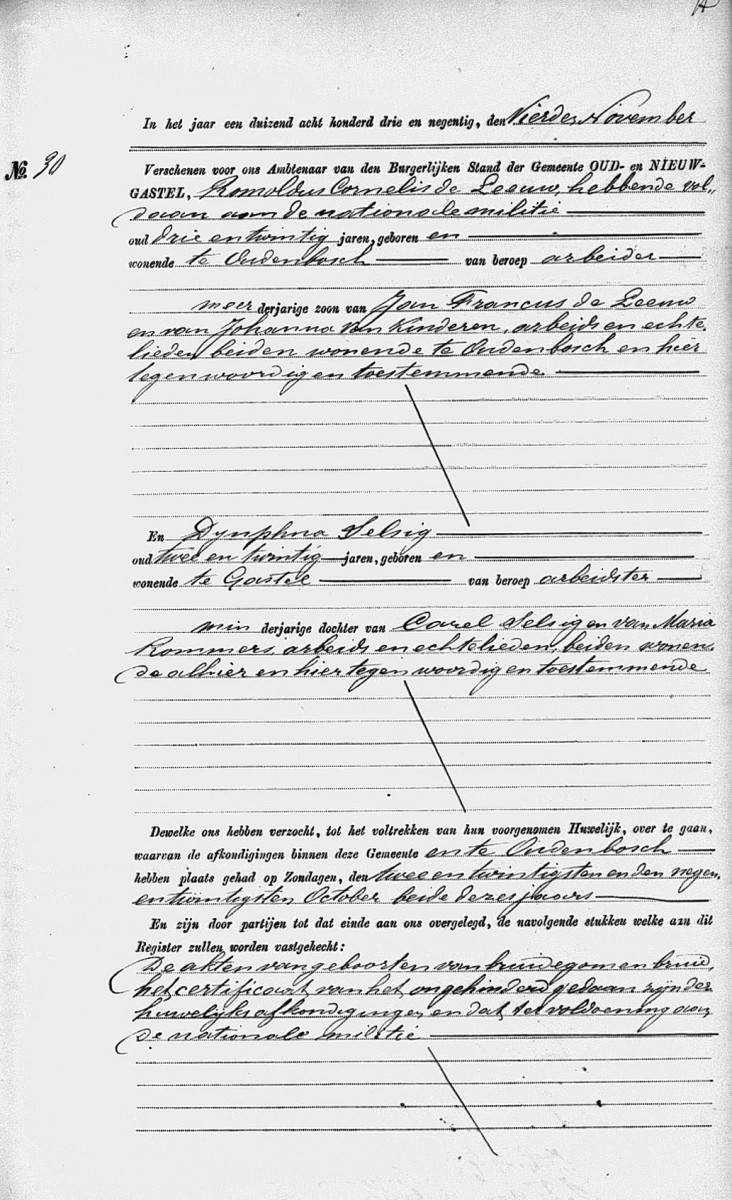 In het jaar een duizend acht honderd drie en negentig, den Vierden November
No. 30
Verschenen voor ons Ambtenaar van den Burgerlijken Stand der Gemeente OUD- en NIEUW-
GASTEL, Romoldus Cornelis de Leeuw, hebbende vol„
daan aan de nationale militie
oud drie en twintig jaren, geboren en
wonende te Oudenbosch van beroep arbeider
meer derjarige zoon van Jan Francus de Leeuw
en van Johanna van Kinderen, arbeids en echte,
lieden, beiden wonende te Oudenbosch en hier
tegenwoordig en toestemmende
En Dynphna Selsig
oud twee en twintig jaren, geboren en
wonende te Gastel van beroep arbeidster
min derjarige dochter van Carel Selsig en van Maria
Rommers, arbeids en echtelieden, beiden wonen,
de alhier en hier tegenwoordig en toestemmende
Dewelke ons hebben verzocht, tot het voltrekken van hun voorgenomen Huwelijk, over te gaan,
waarvan de afkondigingen binnen deze Gemeente en te Oudenbosch
hebben plaats gehad op Zondagen, den twee en twintigsten en den negen,
en twintigsten October beide dezes jaars
En zijn door partijen tot dat einde aan ons overgelegd, de navolgende stukken welke aan dit
Register zullen worden vastgehecht:
De akten van geboorten van bruidegom en bruid,
het certificaat van het ongehinderd gedaan zijn der
huwelijksafkondigingen en dat ter voldoening aan
de nationale militie